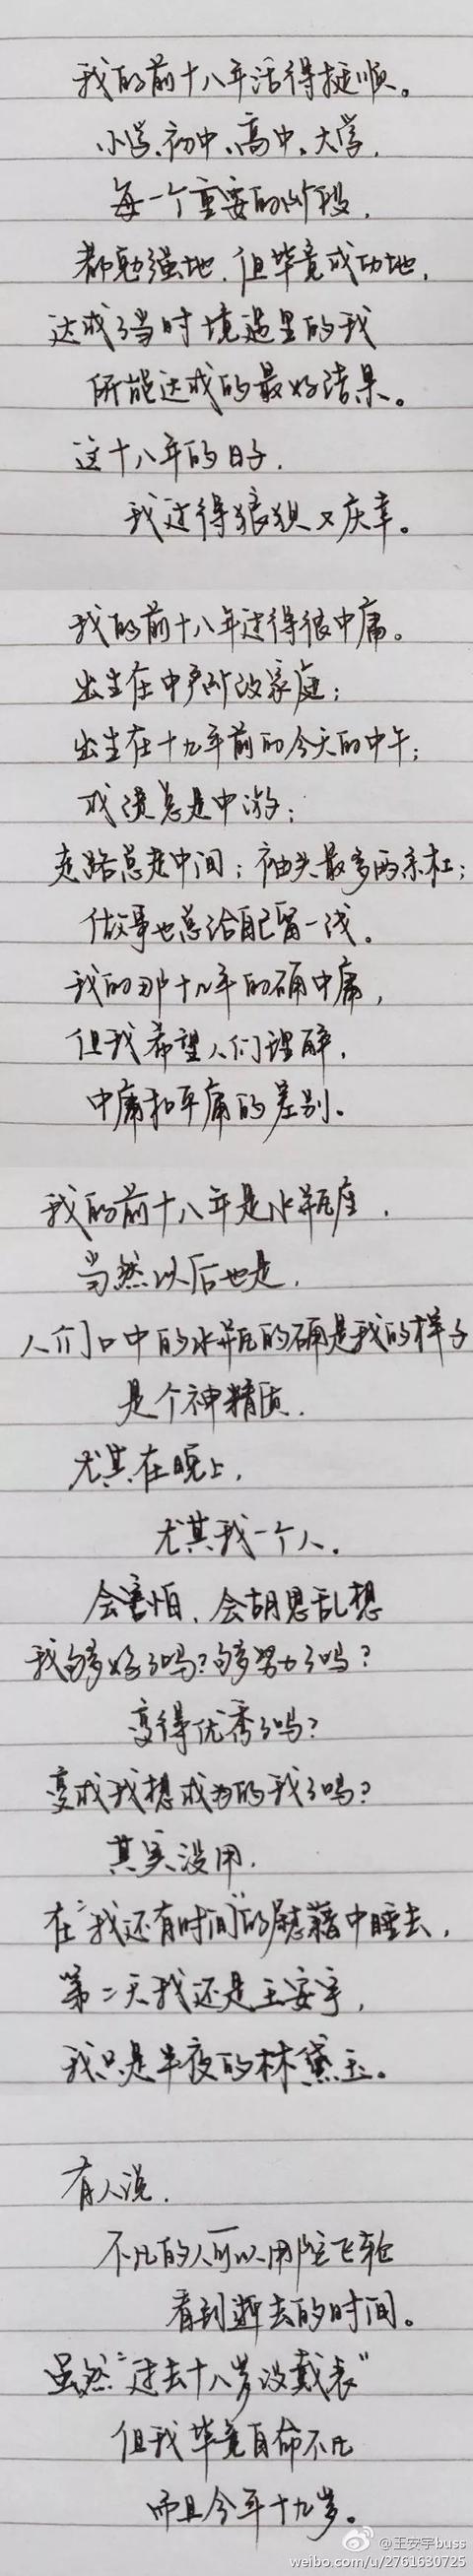 我的前十八年活得挺顺。
小学、初中、高中、大学，
每一个重要的阶段，
都勉强地、但毕竟成功地，
达成了当时境遇里的我
所能达成的最好结果。
这十八年的日子，
我过得狼狈又庆幸。
我的前十八年过得很中庸。
出生在中产阶级家庭；
出生在十九年前的今天的中午；
成绩总是中游；
走路总走中间；袖头最多两条杠；
做事也总给自己留一线。
我的那十八年的确中庸，
但我希望人们理解，
中庸和平庸的差别。
我的前十八年是水瓶座，
当然以后也是，
人们口中的水瓶的确是我的样子
是个神精质，
尤其在晚上，
尤其我一个人。
会害怕、会胡思乱想
我够好了吗？够努力了吗？
变得优秀了吗？
变成我想成为的我了吗？
其实没用，
在“我还有时间”的慰藉中睡去，
第二天我还是王安宇，
我只是半夜的林黛玉。
有人说，
不凡的人可以用陀飞轮
看到逝去的时间。
虽然“过去十八岁没戴表”
但我毕竟自命不凡
而且今年十九岁。
@王安宇buss
weibo.com/u/2761630725